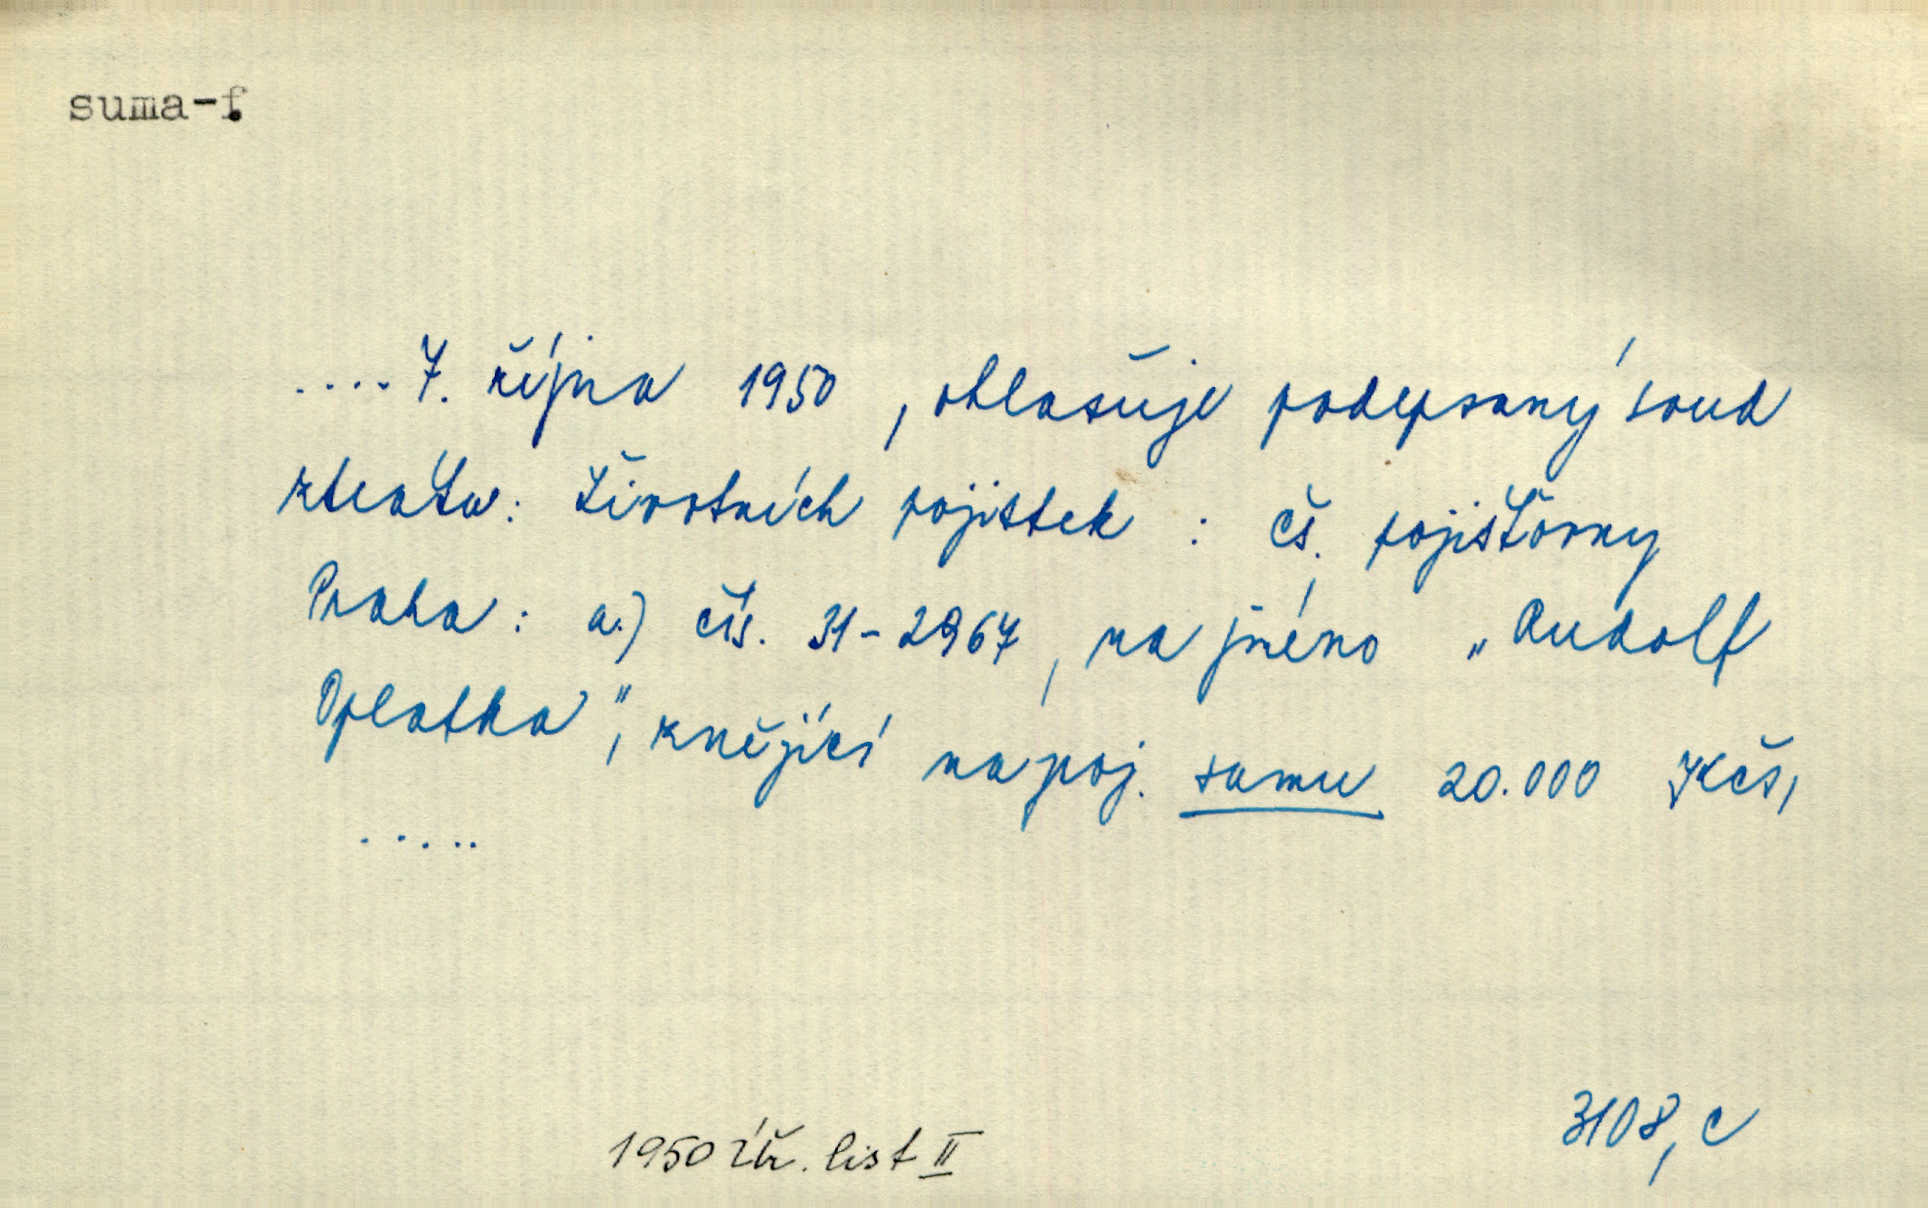 suma-f.
.... 7. října 1950, ohlašuje podepsaný soud
ztrátu: životních pojistek : čs. pojišťovny
Praha: a.) čís. 31-2967, na jméno „Rudolf
Oplatka", znějící na poj. sumu 20.000 Kčs,
.....
1950 úř. list II
3108, c